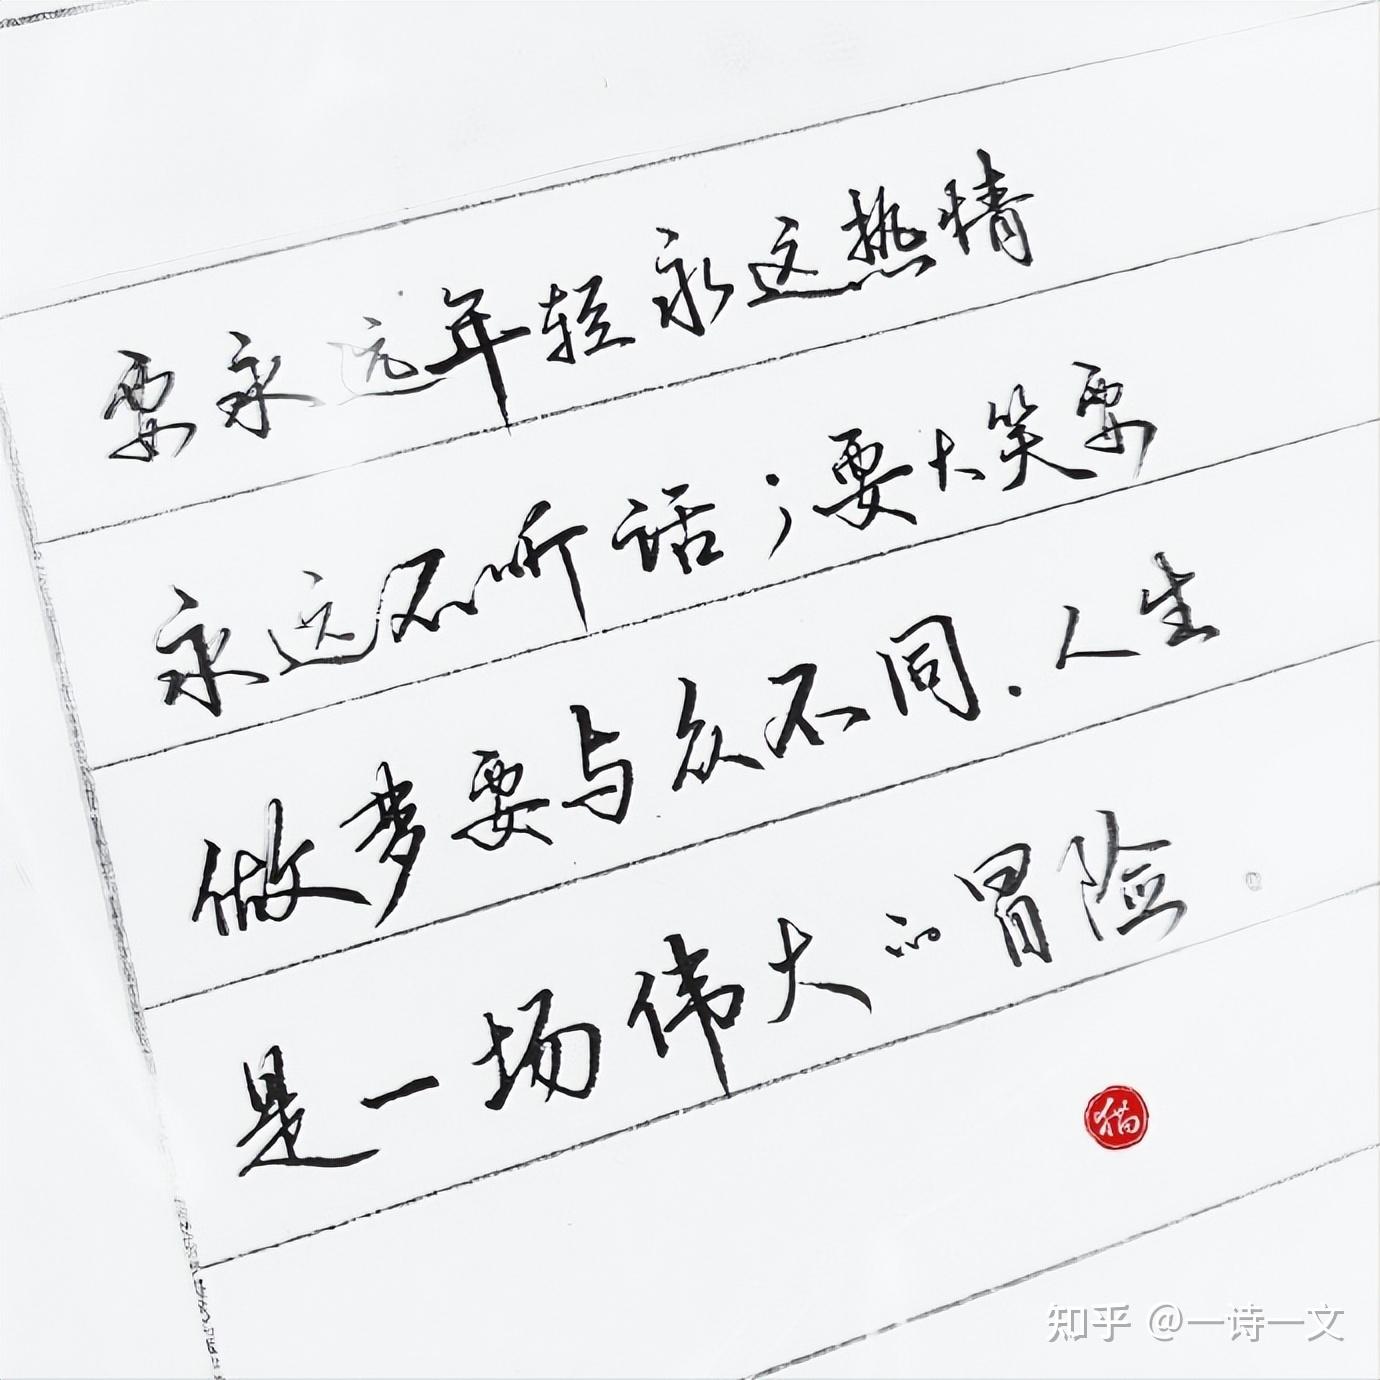 要永远年轻永远热情
永远不听话；要大笑要
做梦要与众不同.人生
是一场伟大的冒险.
猫
知乎 @一诗一文